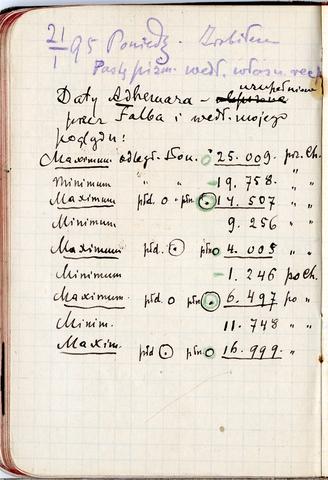 21/1 95 Poniedz. Zrobiłem
Pastę piśm. wedł. własn. rec
Daty Adhemara – uzupełnione
przez Falba i wedł. mojego
poglądu:
Maximum odległ. Słoń. 25.009. prz. Ch.
Minimum " " – 19.758. " "
Maximum płd. o płn. ⊙ 14.507 " "
Minimum 9.256 " "
Maximum płd. ⊙ płn o 4.005 " "
Minimum – 1.246 po Ch.
Maximum płd. o płn ⊙ 6.497 po "
Minim. 11.748 " "
Maxim. płd ⊙ płn. o 16.999. " "